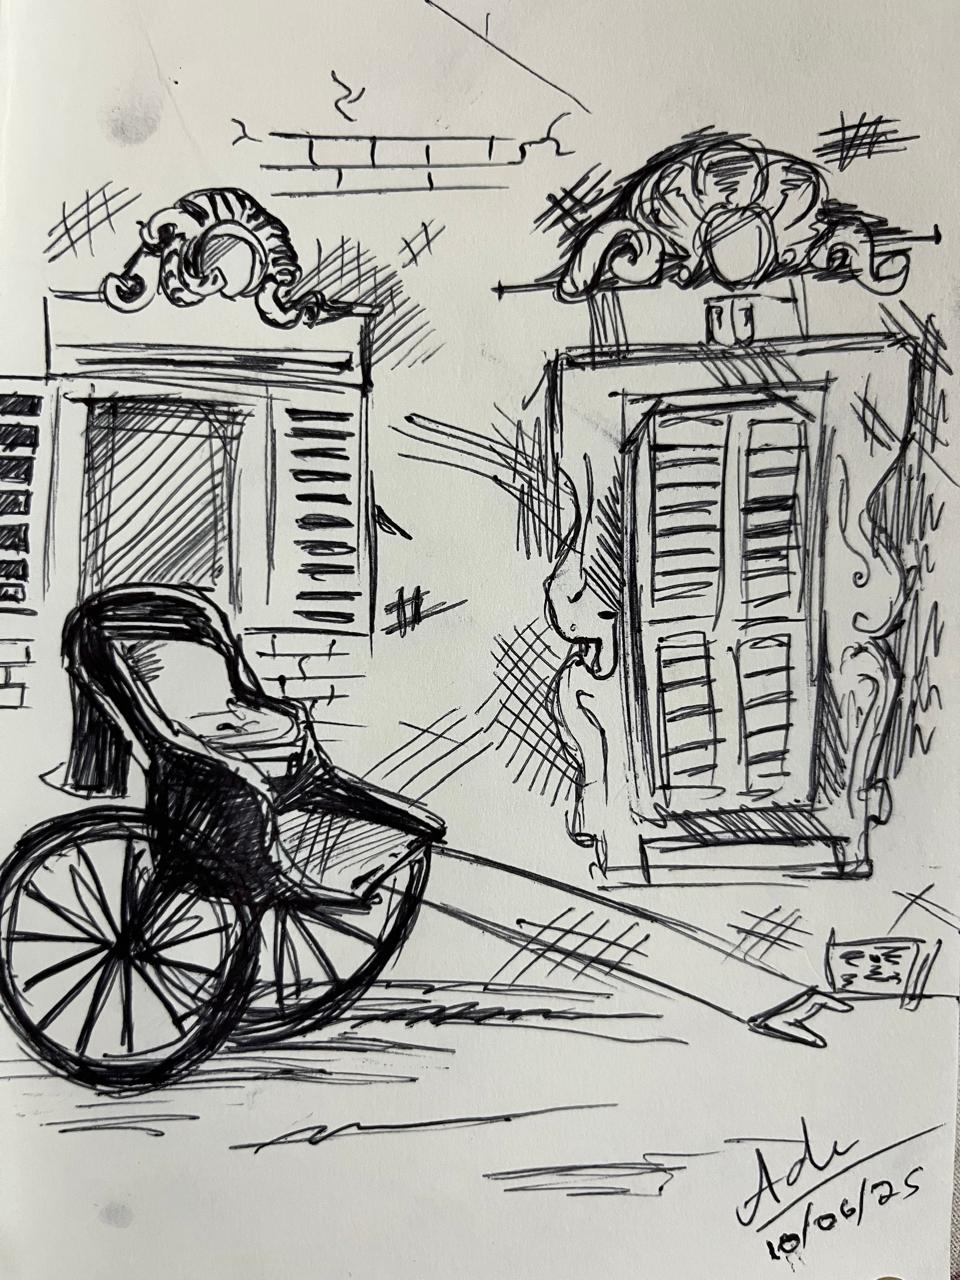 Ade
10/06/25